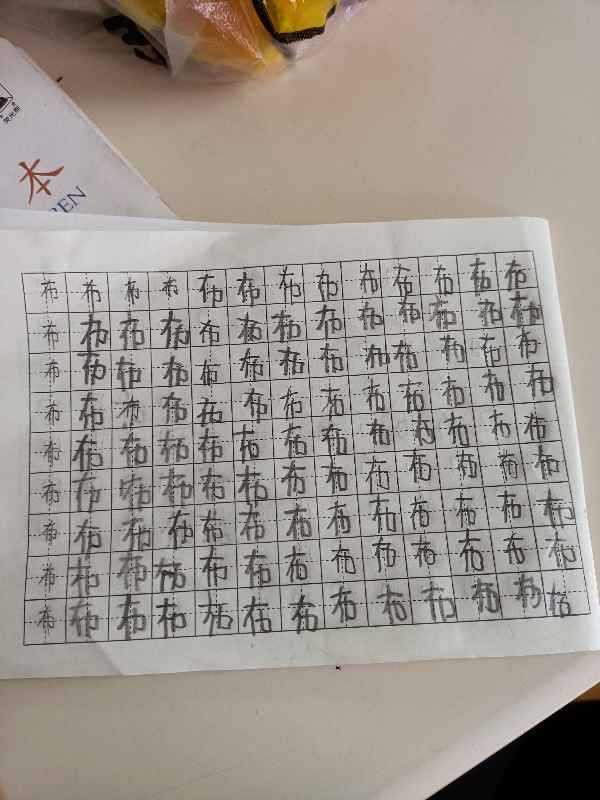 本
布布布布布布布布布布布布布
布布布布布布布布布布布布布
布布布布布布布布布布布布布
布布布布布布布布布布布布布
布布布布布布布布布布布布布
布布布布布布布布布布布布布
布布布布布布布布布布布布布
布布布布布布布布布布布布布
布布布布布布布布布布布布布